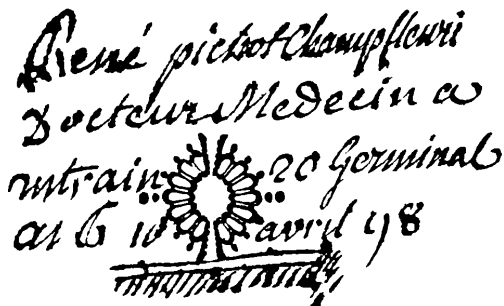 René pichot Champfleuri
Docteur Medecin a
antrain 20 Germinal
an 6 10 avril 98